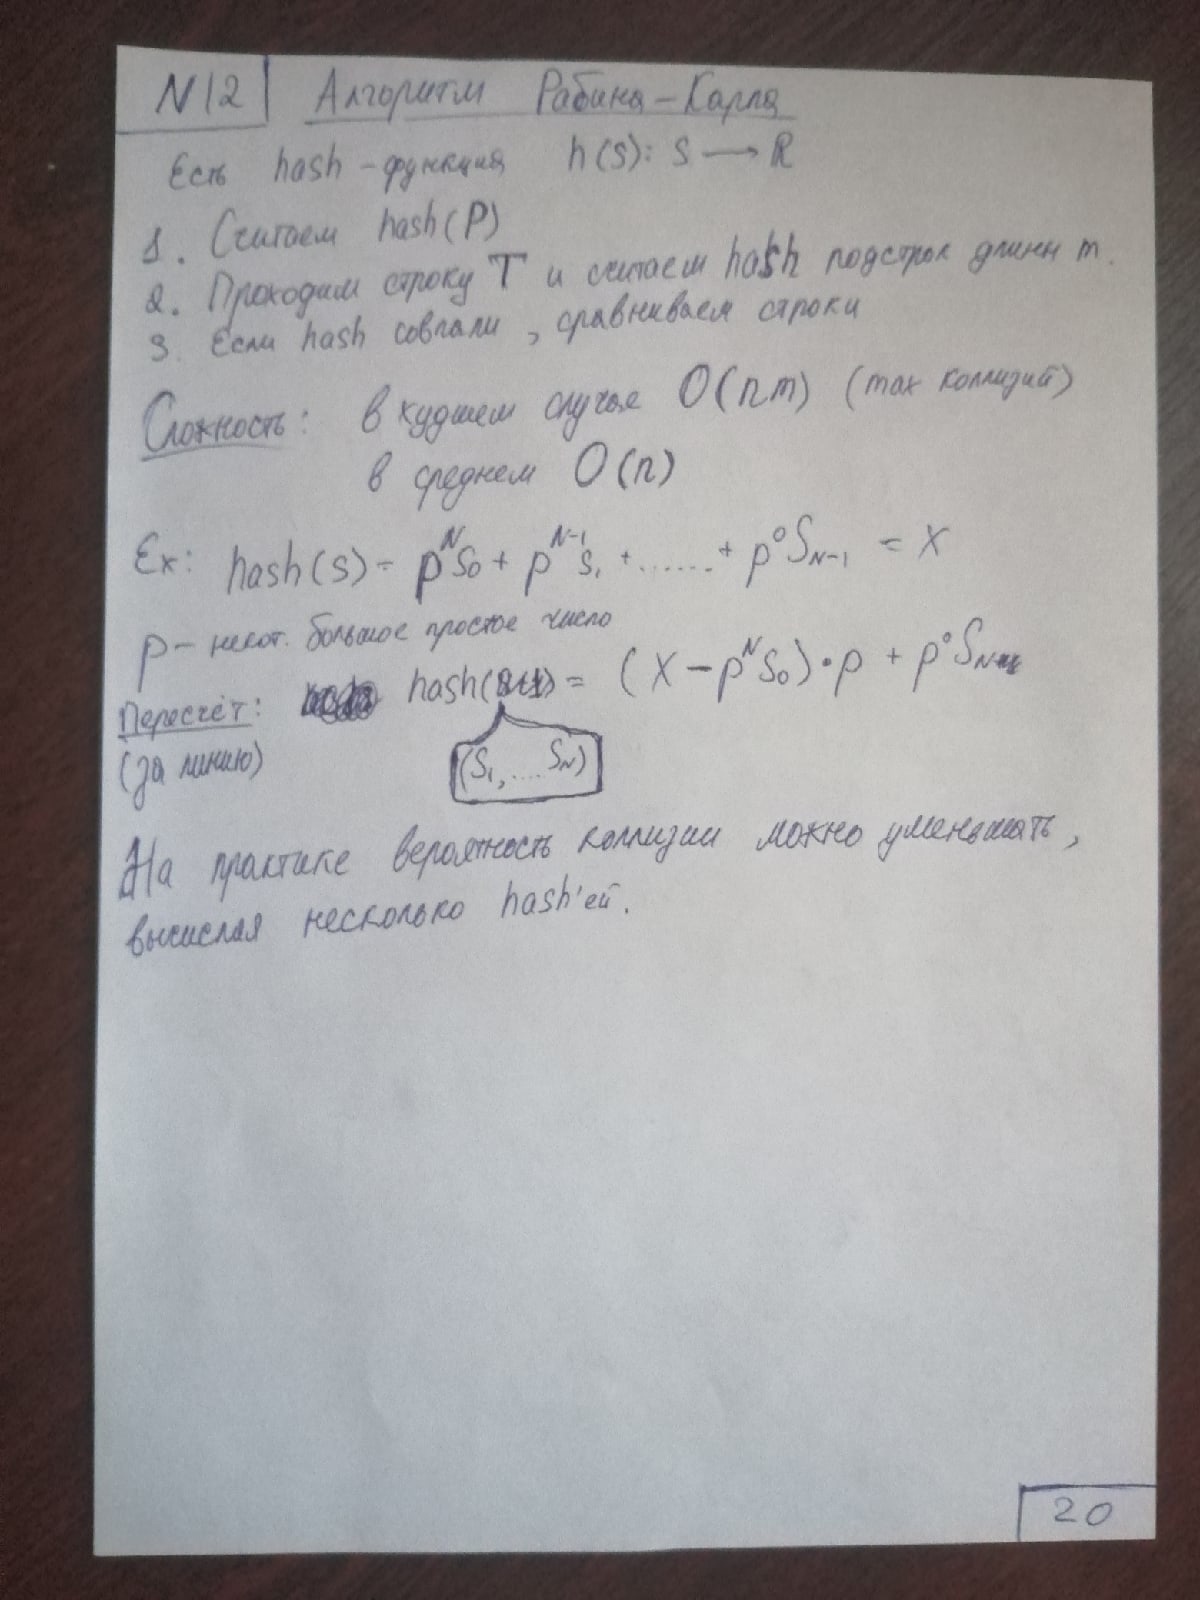 N12 Алгоритм Рабина-Карпа
Есть hash-функция h(s): S → R
1. Считаем hash(P)
2. Проходим строку T и считаем hash подстрок длины m.
3. Если hash совпали, сравниваем строки
Сложность: в худшем случае O(nm) (max коллизий)
в среднем O(n)
Ex: hash(s) = p^N s_0 + p^{N-1} s_1 + ...... + p^0 S_{N-1} = X
p - некот. большое простое число
Пересчёт: hash( ) = (X - p^N S_0) · p + p^0 S_N
(за линию) (S_1, .... S_N)
На практике вероятность коллизии можно уменьшать,
вычисляя несколько hash'ей.
20